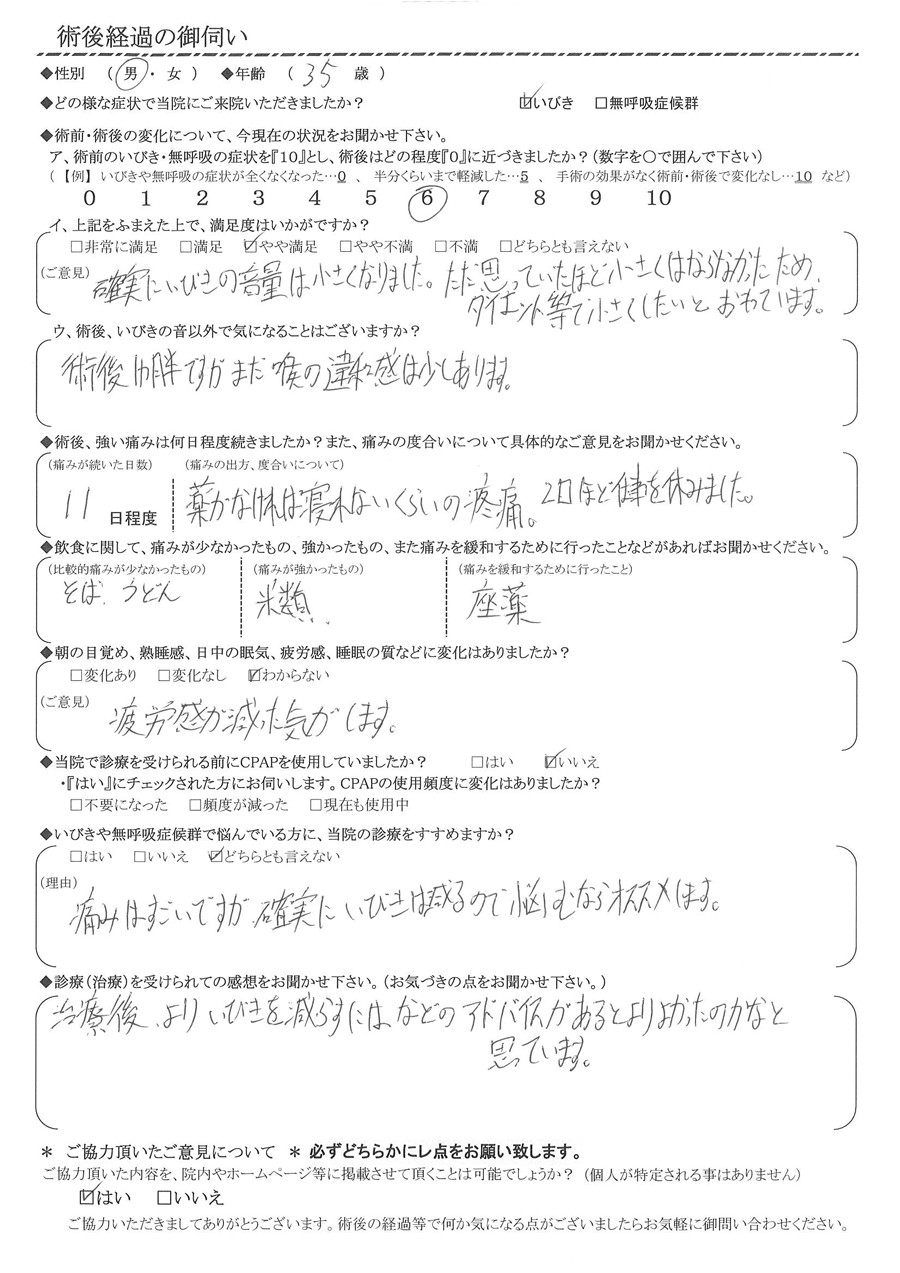 術後経過の御伺い
◆性別 （ 男 ・ 女 ） ◆年齢 （ 35 歳 ）
◆どの様な症状で当院にご来院いただきましたか？ ☑いびき □無呼吸症候群
◆術前・術後の変化について、今現在の状況をお聞かせ下さい。
ア、術前のいびき・無呼吸の症状を『10』とし、術後はどの程度『0』に近づきましたか？（数字を〇で囲んで下さい）
（ 【例】 いびきや無呼吸の症状が全くなくなった…0 、 半分くらいまで軽減した…5 、 手術の効果がなく術前・術後で変化なし…10 など）
0 1 2 3 4 5 6 7 8 9 10
イ、上記をふまえた上で、満足度はいかがですか？
□非常に満足 □満足 ☑やや満足 □やや不満 □不満 □どちらとも言えない
（ご意見） 確実にいびきの音量は小さくなりました。ただ思っていたほど小さくはならなかったため、
ダイエット等で小さくしたいとおもています。
ウ、術後、いびきの音以外で気になることはございますか？
術後1ヵ月半ですがまだ喉の違和感は少しあります。
◆術後、強い痛みは何日程度続きましたか？また、痛みの度合いについて具体的なご意見をお聞かせください。
（痛みが続いた日数） （痛みの出方、度合いについて）
11 日程度 薬がなければ寝れないくらいの疼痛。2日ほど仕事を休みました。
◆飲食に関して、痛みが少なかったもの、強かったもの、また痛みを緩和するために行ったことなどがあればお聞かせください。
（比較的痛みが少なかったもの） （痛みが強かったもの） （痛みを緩和するために行ったこと）
そば、うどん 米類 座薬
◆朝の目覚め、熟睡感、日中の眠気、疲労感、睡眠の質などに変化はありましたか？
□変化あり □変化なし ☑わからない
（ご意見） 疲労感が減った気がします。
◆当院で診療を受けられる前にCPAPを使用していましたか？ □はい ☑いいえ
・『はい』にチェックされた方にお伺いします。CPAPの使用頻度に変化はありましたか？
□不要になった □頻度が減った □現在も使用中
◆いびきや無呼吸症候群で悩んでいる方に、当院の診療をすすめますか？
□はい □いいえ ☑どちらとも言えない
（理由）
痛みはすごいですが、確実にいびきは減るので悩むならオススメします。
◆診療（治療）を受けられての感想をお聞かせ下さい。（お気づきの点をお聞かせ下さい。）
治療後、よりいびきを減らすには、などのアドバイスがあるとよりよかったのかなと
思っています。
＊ ご協力頂いたご意見について ＊ 必ずどちらかにレ点をお願い致します。
ご協力頂いた内容を、院内やホームページ等に掲載させて頂くことは可能でしょうか？（個人が特定される事はありません）
☑はい □いいえ
ご協力いただきましてありがとうございます。術後の経過等で何か気になる点がございましたらお気軽に御問い合わせください。